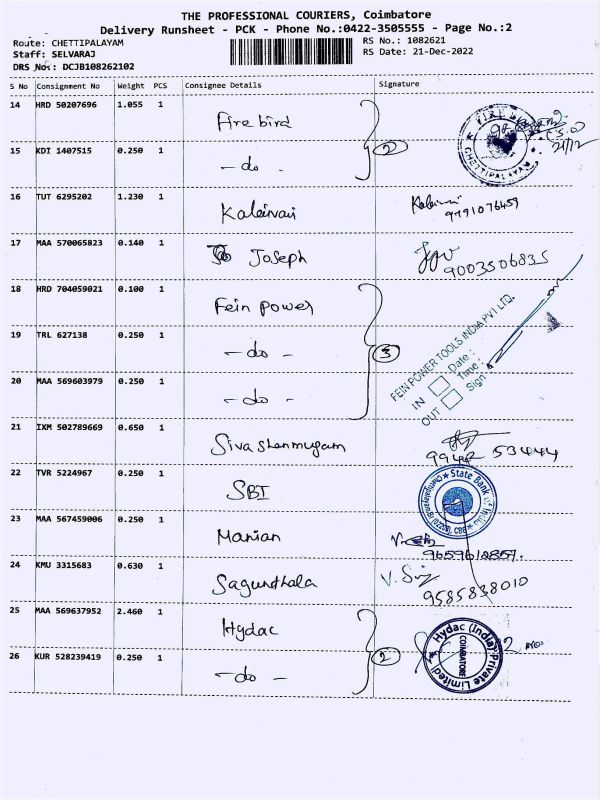 THE PROFESSIONAL COURIERS, Coimbatore
Delivery Runsheet - PCK - Phone No.:0422-3505555 - Page No.:2
Route: CHETTIPALAYAM
RS No.: 1082621
Staff: SELVARAJ
RS Date: 21-Dec-2022
DRS No.: DCJB108262102
S No Consignment No Weight PCS Consignee Details Signature
14 HRD 50207696 1.055 1 Fire bird
FIRE BIRD CHETTIPALAYAM 21/12
15 KDI 1407515 0.250 1 - do - 2
16 TUT 6295202 1.230 1 Kalaivani 9791076459
17 MAA 570065823 0.140 1 Joseph 9003506835
18 HRD 704059021 0.100 1 Fein power
19 TRL 627138 0.250 1 - do - 3
20 MAA 569603979 0.250 1 - do -
FEIN POWER TOOLS INDIA PVT LTD.
IN Date :
Time :
OUT Sign
21 IXM 502789669 0.650 1 Sivashanmugam 53444
22 TVR 5224967 0.250 1 SBI
State Bank of India
23 MAA 567459006 0.250 1 Manian
24 KMU 3315683 0.630 1 Sagunthala 9585838010
25 MAA 569637952 2.460 1 Hydac
Hydac (india) Private Limited COIMBATORE
26 KUR 528239419 0.250 1 - do - 2